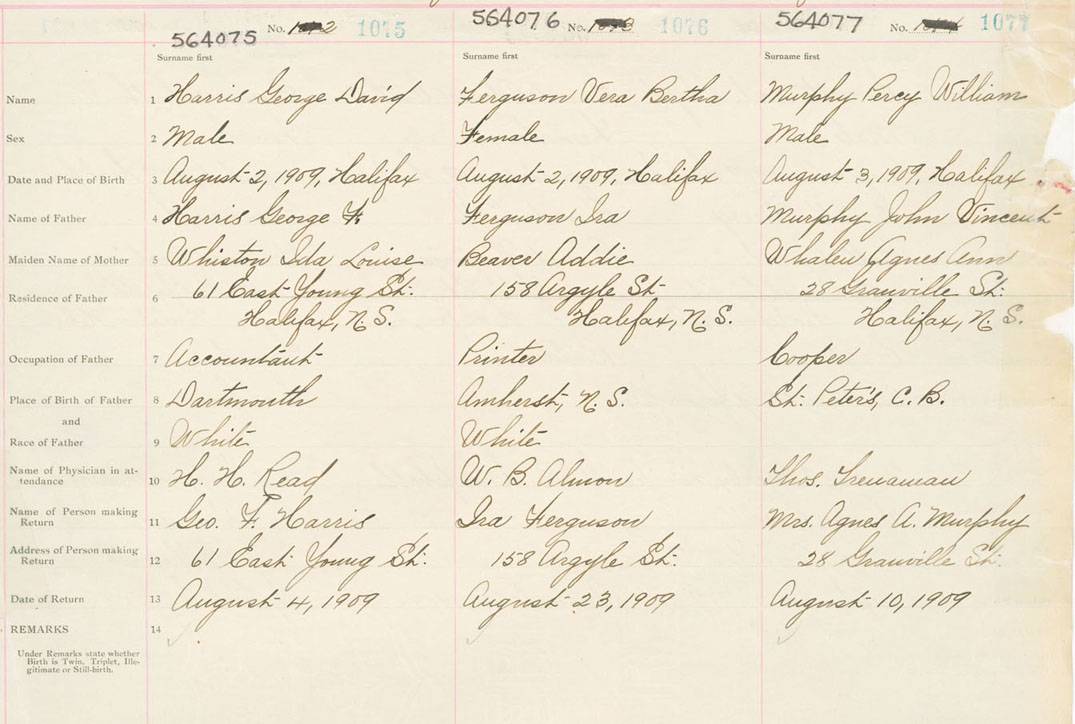 564075 No. 1075
564076 No. 1076
564077 No. 1077
Surname first Surname first Surname first
Name 1 Harris George David Ferguson Vera Bertha Murphy Percy William
Sex 2 Male Female Male
Date and Place of Birth 3 August 2, 1909, Halifax August 2, 1909, Halifax August 3, 1909, Halifax
Name of Father 4 Harris George F. Ferguson Ira Murphy John Vincent
Maiden Name of Mother 5 Whiston Ida Louise Beaver Addie Whalen Agnes Ann
Residence of Father 6 61 East Young St. 158 Argyle St. 28 Granville St.
Halifax, N.S. Halifax, N.S. Halifax, N.S.
Occupation of Father 7 Accountant Printer Cooper
Place of Birth of Father 8 Dartmouth Amherst, N.S. St. Peter's, C.B.
and
Race of Father 9 White White
Name of Physician in at-
tendance 10 H. H. Read W. B. Almon Thos. Trenaman
Name of Person making
Return 11 Geo. F. Harris Ira Ferguson Mrs. Agnes A. Murphy
Address of Person making
Return 12 61 East Young St. 158 Argyle St. 28 Granville St.
Date of Return 13 August 4, 1909 August 23, 1909 August 10, 1909
REMARKS 14
Under Remarks state whether
Birth is Twin, Triplet, Ille-
gitimate or Still-birth.